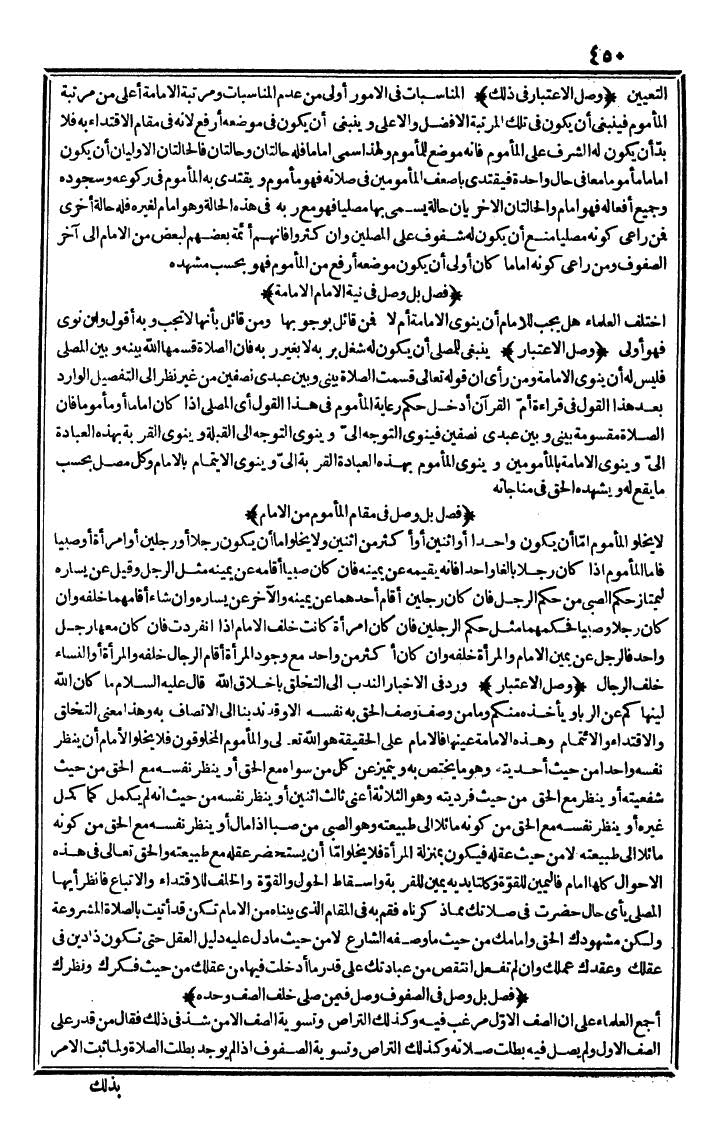 ٤٥٠
التعيين ﴿وصل الاعتبار فى ذلك﴾ المناسبات فى الامور أولى من عدم المناسبات ومرتبة الامامة أعلى من مرتبة
المأموم فينبغى أن يكون فى تلك المرتبة الافضل والاعلى وينبغى أن يكون فى موضعه أرفع لانه فى مقام الاقتداء به فلا
بدّ أن يكون له الشرف على المأموم فانه موضع للمأموم ولهذا سمى اماما فله حالتان وحالتان فالحالتان الاوليان أن يكون
اماما مأموما معا فى حال واحدة فيقتدى باضعف المأمومين فى صلاته فهو مأموم ويقتدى به المأموم فى ركوعه وسجوده
وجميع أفعاله فهو امام والحالتان الاخريان حالة يسمى بها مصليا فهو مع ربه فى هذه الحالة وهو امام لغيره فله حالة أخرى
فمن راعى كونه مصليا منع أن يكون له شفوف على المصلين وان كثروا فانهم أئمة بعضهم لبعض من الامام الى آخر
الصفوف ومن راعى كونه اماما كان أولى أن يكون موضعه أرفع من المأموم فهو بحسب مشهده
﴿فصل بل وصل فى نية الامام الامامة﴾
اختلف العلماء هل يجب للامام أن ينوى الامامة أم لا فمن قائل بوجوبها ومن قائل بأنها لا تجب وبه أقول وان نوى
فهو أولى ﴿وصل الاعتبار﴾ ينبغى للمصلى أن يكون له شغل بربه لا بغير ربه فان الصلاة قسمها الله بينه وبين المصلى
فليس له أن ينوى الامامة ومن رأى ان قوله تعالى قسمت الصلاة بينى وبين عبدى نصفين من غير نظر الى التفصيل الوارد
بعد هذا القول فى قراءة أمّ القرآن أدخل حكم رعاية المأموم فى هذا القول أى المصلى اذا كان اماما أو مأموما فان
الصلاة مقسومة بينى وبين عبدى نصفين فينوى التوجه الىّ وينوى التوجه الى القبلة وينوى القربة بهذه العبادة
الىّ وينوى الامامة بالمأمومين وينوى المأموم بهذه العبادة القربة الىّ وينوى الايتمام بالامام وكل مصل بحسب
ما يقع له ويشهده الحق فى مناجاته
﴿فصل بل وصل فى مقام المأموم من الامام﴾
لا يخلو المأموم امّا أن يكون واحدا أو اثنين أو أكثر من اثنين ولا يخلو اما أن يكون رجلا أو رجلين أو امرأة أو صبيا
فاما المأموم اذا كان رجلا بالغا واحدا فانه يقيمه عن يمينه فان كان صبيا أقامه عن يمينه مثل الرجل وقيل عن يساره
ليمتاز حكم الصبى من حكم الرجل فان كان رجلين أقام أحدهما عن يمينه والآخر عن يساره وان شاء أقامهما خلفه وان
كان رجلا وصبيا فحكمهما مثل حكم الرجلين فان كان امرأة كانت خلف الامام اذا انفردت فان كان معها رجل
واحد فالرجل عن يمين الامام والمرأة خلفه وان كان أكثر من واحد مع وجود المرأة أقام الرجال خلفه والمرأة أو النساء
خلف الرجال ﴿وصل الاعتبار﴾ ورد فى الاخبار الندب الى التخلق باخلاق الله قال عليه السلام ما كان الله
لينهاكم عن الربا ويأخذه منكم وما من وصف وصف الحق به نفسه الا وقد ندبنا الى الاتصاف به وهذا معنى التخلق
والاقتداء والائتمام وهذه الامامة عينها فالامام على الحقيقة هو الله تعالى والمأموم المخلوقون فلا يخلو الامام أن ينظر
نفسه واحدا من حيث أحديته وهو ما يختص به ويتميز عن كل من سواه مع الحق أو ينظر نفسه مع الحق من حيث
شفعيته أو ينظر مع الحق من حيث فرديته وهو الثلاثة أعنى ثالث اثنين أو ينظر نفسه من حيث انه لم يكمل كما كمل
غيره أو ينظر نفسه مع الحق من كونه مائلا الى طبيعته وهو الصبى من صبا اذا مال أو ينظر نفسه مع الحق من كونه
مائلا الى طبيعته لا من حيث عقله فيكون بمنزلة المرأة فلا يخلو امّا أن يستحضر عقله مع طبيعته والحق تعالى فى هذه
الاحوال كلها امام فاليمين للقوّة وكلتا يديه يمين للقربة واسقاط الحول والقوّة والخلف للاقتداء والاتباع فانظر أيها
المصلى بأى حال حضرت فى صلاتك مما ذكرناه فقم به فى المقام الذى بيناه من الامام تكن قد أتيت بالصلاة المشروعة
وليكن مشهودك الحق وامامك من حيث ما وصفه الشارع لا من حيث ما دل عليه دليل العقل حتى تكون ذا دين فى
عقلك وعقدك عملك وان لم تفعل انتقص من عبادتك على قدر ما أدخلت فيها من عقلك من حيث فكرك ونظرك
﴿فصل بل وصل فى الصفوف وصل فيمن صلى خلف الصف وحده﴾
أجمع العلماء على ان الصف الاوّل مرغب فيه وكذلك التراص وتسوية الصف الا من شذ فى ذلك فقال من قدر على
الصف الاول ولم يصل فيه بطلت صلاته وكذلك التراص وتسوية الصفوف اذا لم يوجد بطلت الصلاة ولما ثبت الامر
بذلك